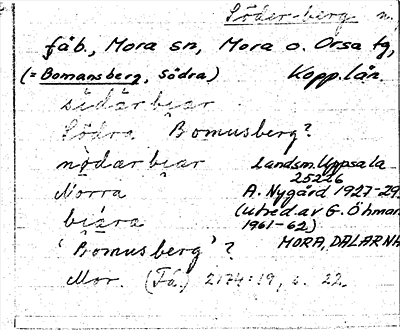 Söder-berg n.
fäb., Mora sn, Mora o. Orsa tg,
(= Bomansberg, Södra) Kopp. län.
sidärbiar
Södra Bomusberg?
nödarbiar Landsm. Uppsala
25226
Norra A. Nygård 1927-29
biära (utred. av G. Öhman
1961-62)
'Bomusberg'? MORA, DALARNA
Mor. (Fä.) 2174:19, s. 22.